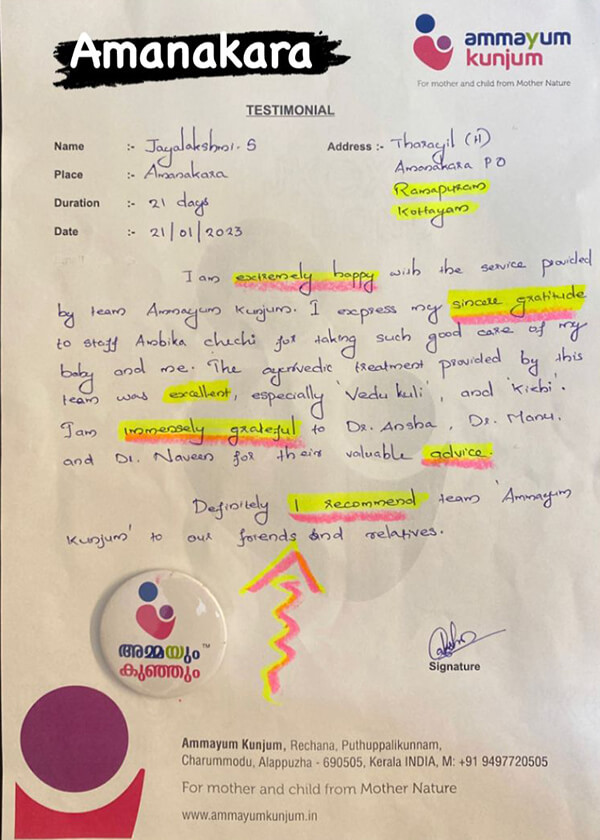 Amanakara
ammayum
kunjum
For mother and child from Mother Nature
TESTIMONIAL
Name :- Jayalakshmi. S
Address :- Tharayil (H)
Amanakara PO
Ramapuram
Kottayam
Place :- Amanakara
Duration :- 21 days
Date :- 21/01/2023
I am extremely happy with the service provided
by team Ammayum Kunjum. I express my sincere gratitude
to staff Ambika chechi for taking such good care of my
baby and me. The ayurvedic treatment provided by this
team was excellent, especially 'Vedu kuli', and 'Kichi'.
I am immensely grateful to Dr. Ansha, Dr. Manu.
and Dr. Naveen for their valuable advice.
Definitely I recommend team 'Ammayum
Kunjum' to our forends and relatives.
അമ്മയും TM
കുഞ്ഞും
Signature
Ammayum Kunjum, Rechana, Puthuppalikunnam,
Charummodu, Alappuzha - 690505, Kerala INDIA, M: +91 9497720505
For mother and child from Mother Nature
www.ammayumkunjum.in